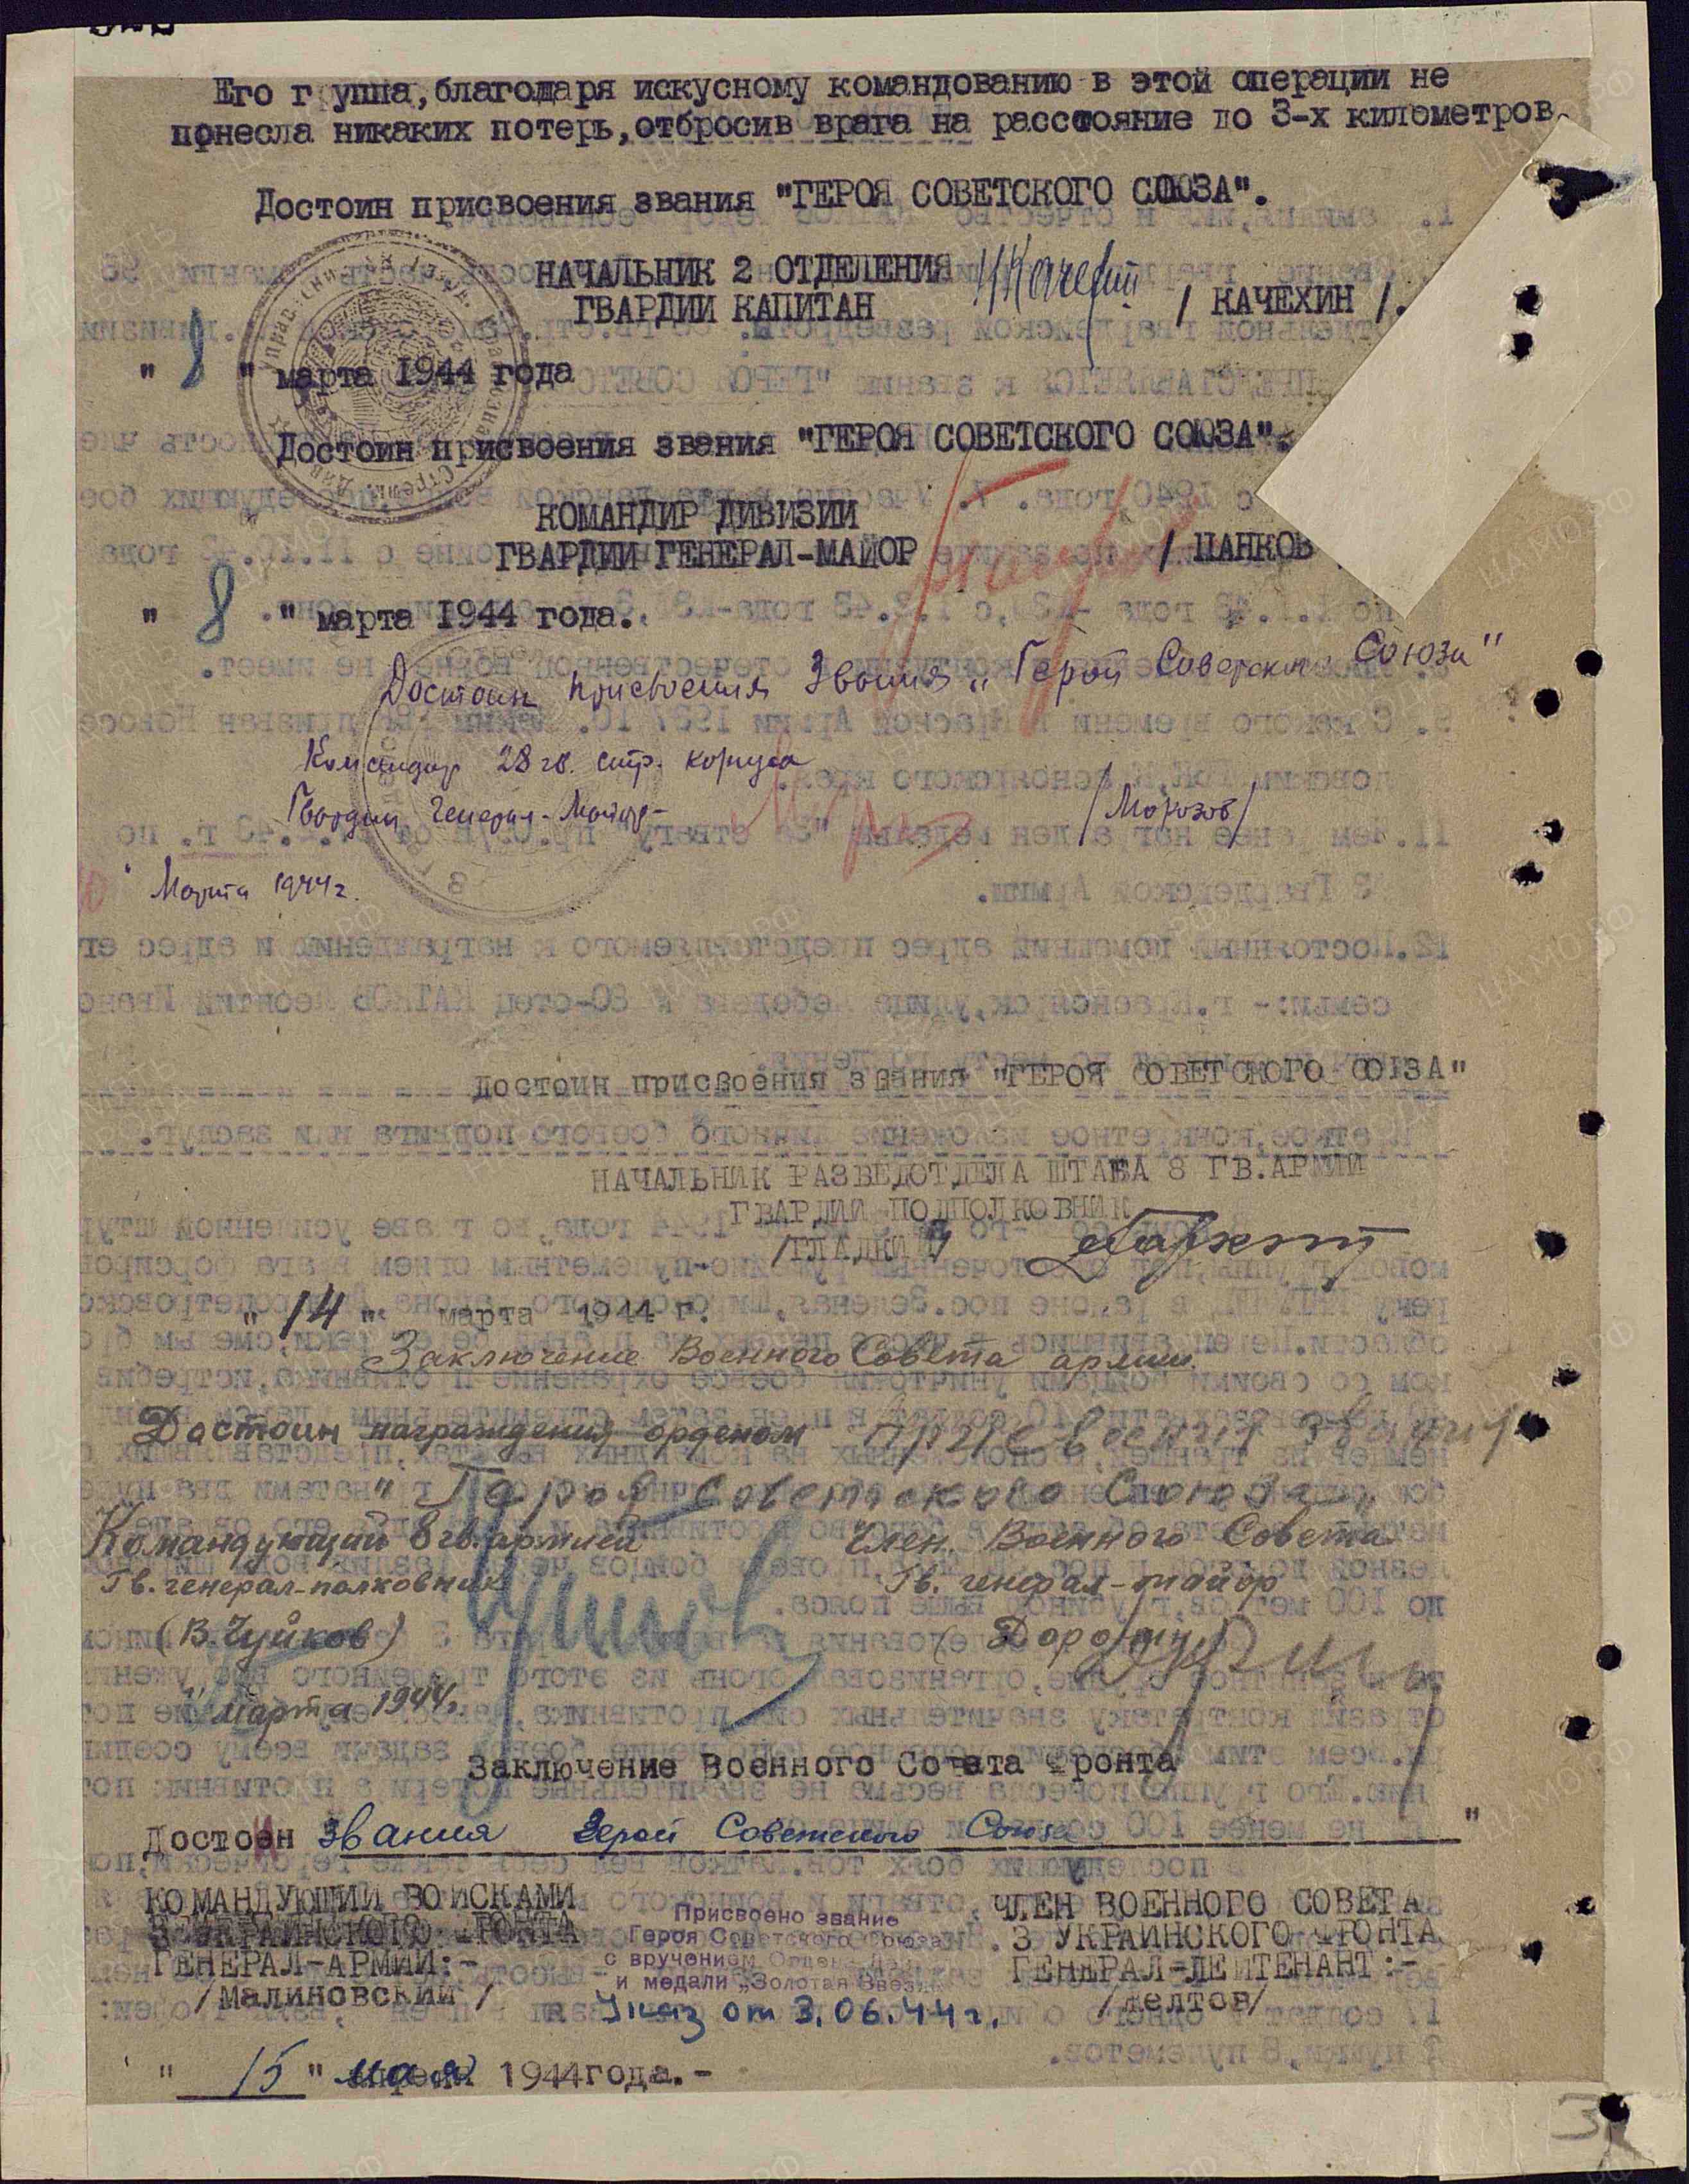 Его группа, благодаря искусному командованию в этой операции не
понесла никаких потерь, отбросив врага на расстояние до 3-х километров.
Достоин присвоения звания "ГЕРОЯ СОВЕТСКОГО СОЮЗА".
НАЧАЛЬНИК 2 ОТДЕЛЕНИЯ
ГВАРДИИ КАПИТАН / КАЧЕХИН /.
" 8 " марта 1944 года
Достоин присвоения звания "ГЕРОЯ СОВЕТСКОГО СОЮЗА".
КОМАНДИР ДИВИЗИИ
ГВАРДИИ ГЕНЕРАЛ-МАЙОР / ПАНКОВ
" 8 " марта 1944 года.
Достоин присвоения Звания „Герой Советского Союза"
Командир 28 гв. стр. корпуса
Гвардии Генерал-Майор- /Морозов/
" Марта 1944 г.
достоин присвоения звания "ГЕРОЯ СОВЕТСКОГО СОЮЗА"
НАЧАЛЬНИК РАЗВЕДОТДЕЛА ШТАБА 8 ГВ.АРМИИ
ГВАРДИИ ПОДПОЛКОВНИК
/ГЛАДКИЙ/
" 14 " марта 1944 г.
Заключение Военного Совета армии.
Достоин награждения орденом присвоения звания
„Героя Советского Союза"
Командующий 8 гв. армией Член Военного Совета
Гв. генерал-полковник Гв. генерал-майор
(В. Чуйков) (Доронин)
" марта 1944 г.
Заключение Военного Совета фронта
Достоин звания Герой Советского Союза "
КОМАНДУЮЩИЙ ВОЙСКАМИ ЧЛЕН ВОЕННОГО СОВЕТА
3 УКРАИНСКОГО ФРОНТА 3 УКРАИНСКОГО ФРОНТА
ГЕНЕРАЛ-АРМИИ:- ГЕНЕРАЛ-ЛЕЙТЕНАНТ:-
/Малиновский/ /Желтов/
Присвоено звание
Героя Советского Союза
с вручением Ордена
и медали „Золотая Звезда
Указ от 3.06.44 г.
" 15 " мая 1944 года.-